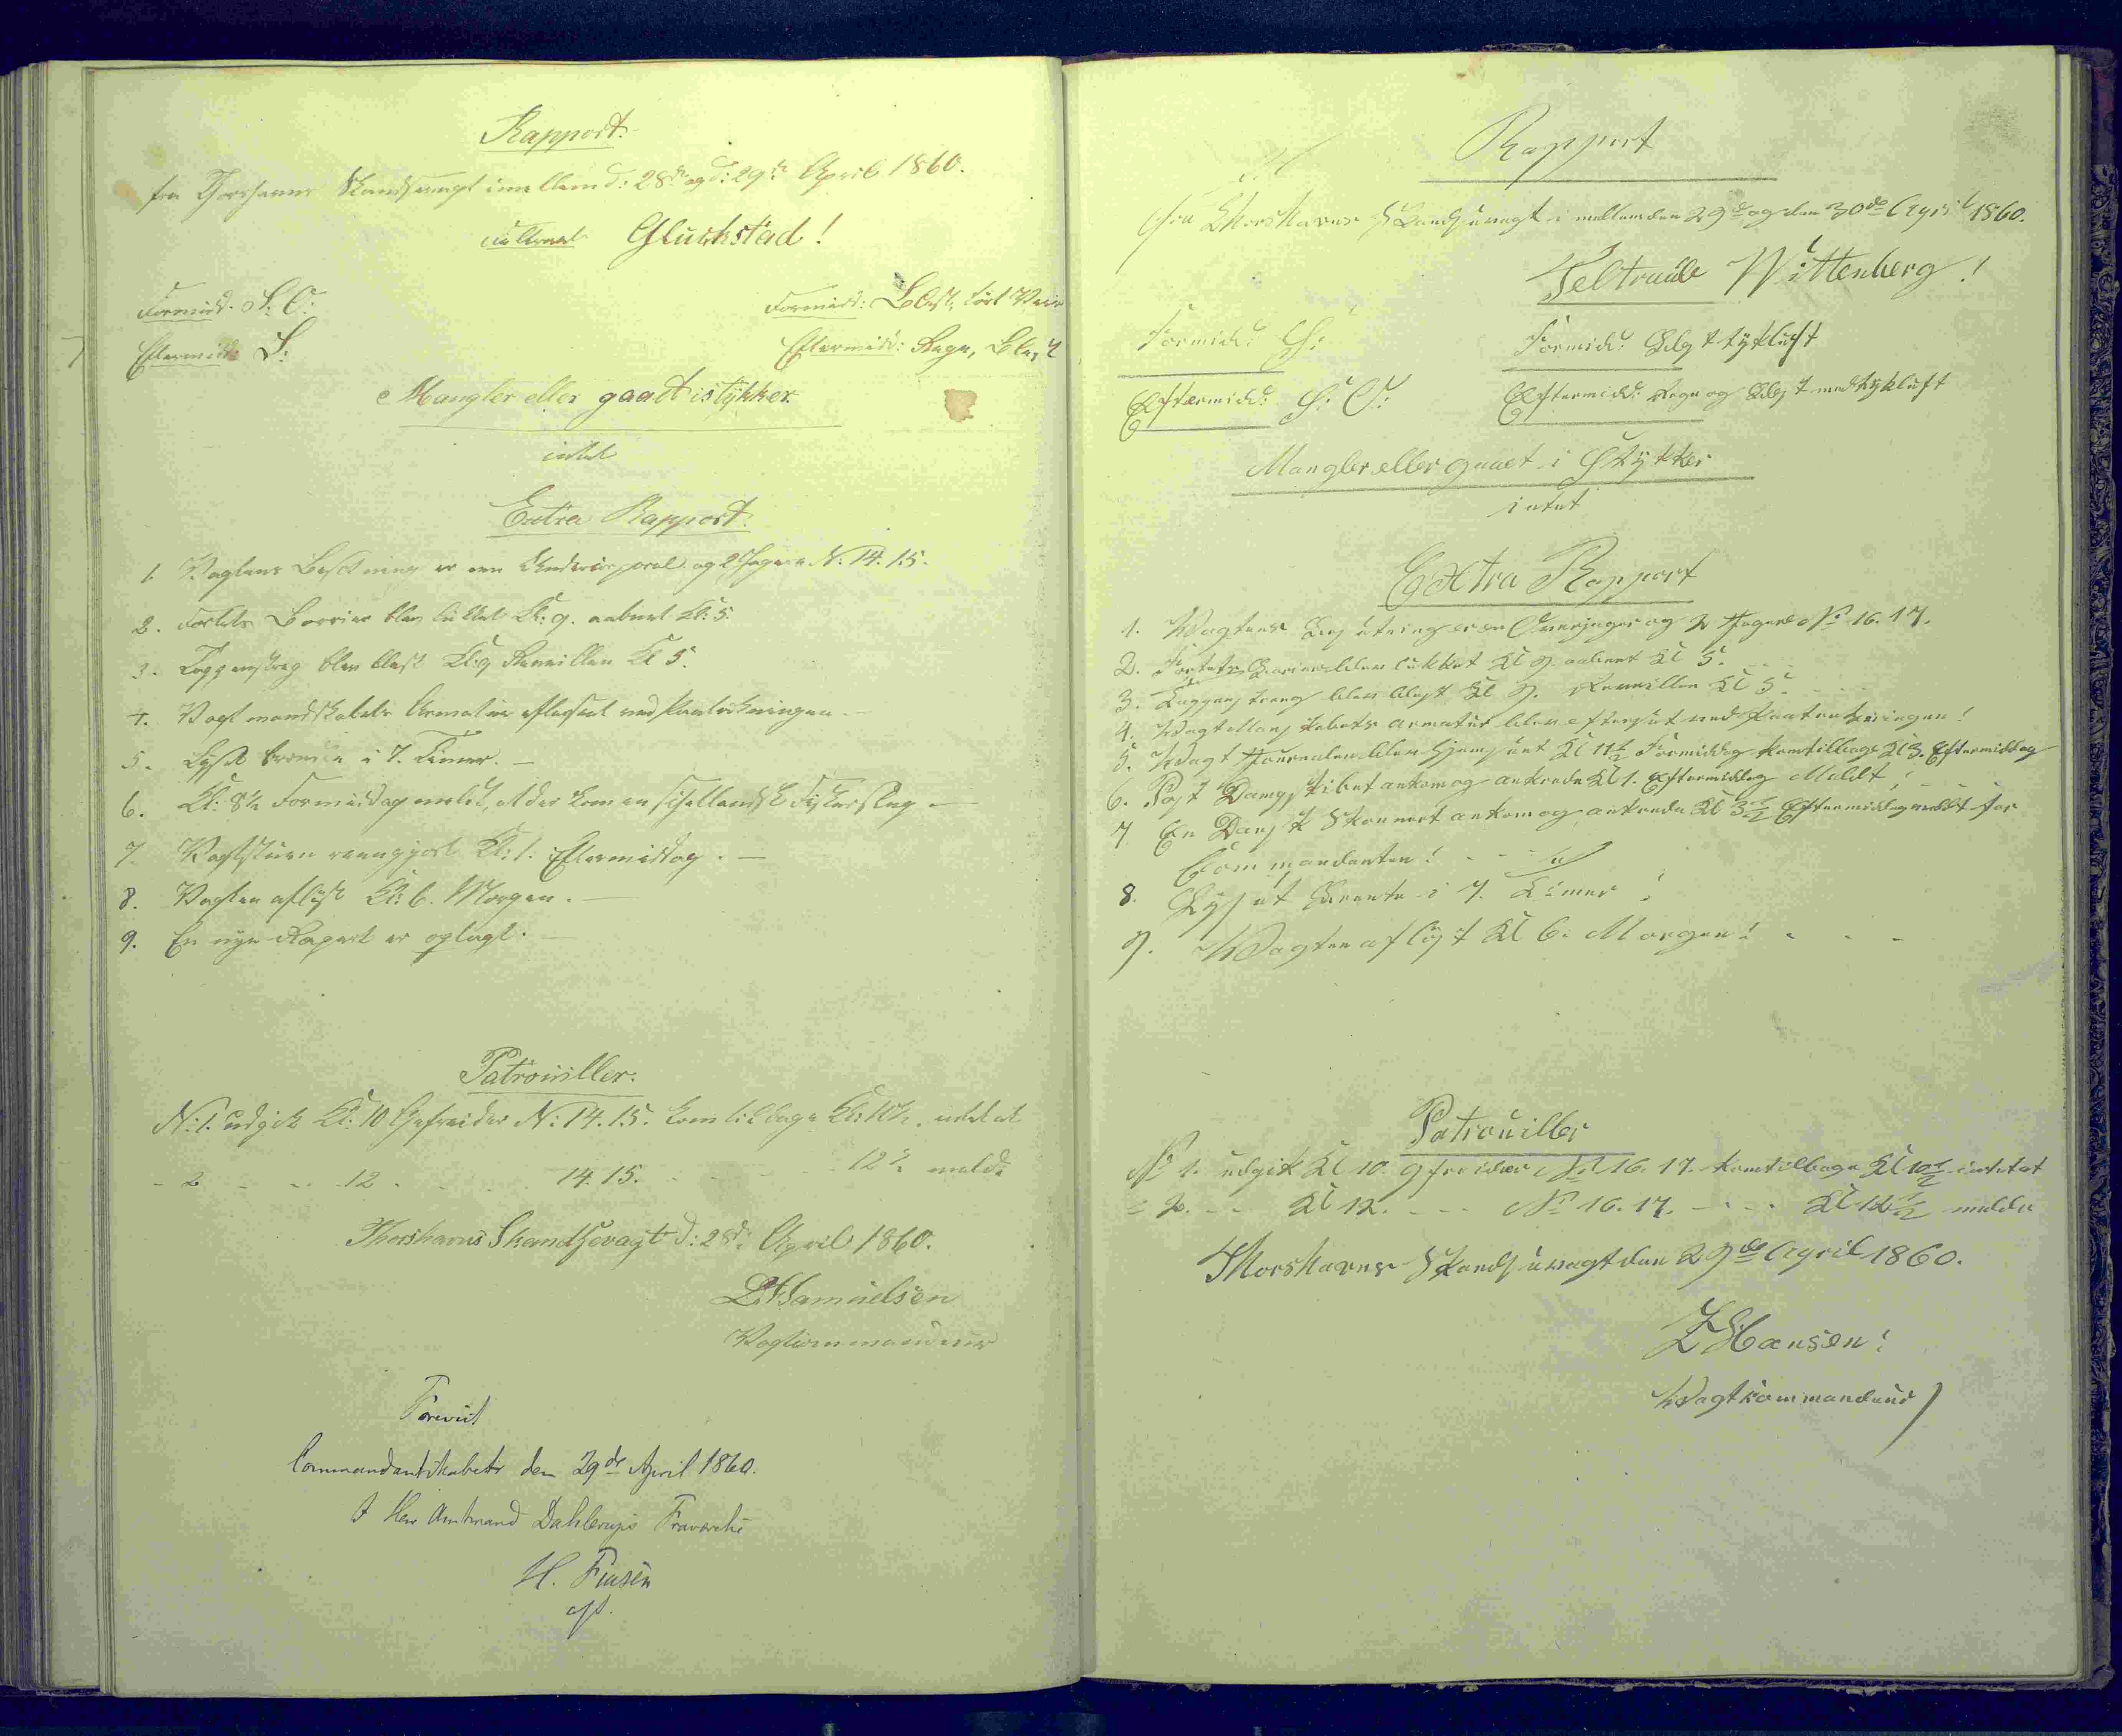 Rapport.
fra Thorshavns Skandsevagt imellem d: 28de og d: 29de April 1860.
Feltraab Gluckstad!
Formidd. S. O:
Formidd: Blæst, tört Veir
Eftermidd: S:
Eftermidd: Regn, Blæst
Mangler eller gaaet i stÿkker
intet
Extra Rapport.
1. Vagtens Besætning er en Undercorporal og 2 Jægere N: 14. 15.
2. Fortets Barrier blev lukket Kl: 9. aabnet Kl: 5.
3. Tappenstreg blev blæst Kl: 9 Reveillen Kl 5.
4. Vagtmandskabets Armatur efterseet ved Paatrækningen
5. Lÿset brændte i 7. Timer.
6. Kl: 8½ Formiddag meldt, at der kom en schetlandsk Fiskerslup
7. Vagtstuen rengjort Kl: 1. Eftermiddag.
8. Vagten aflöst Kl: 6. Morgen.
9. En nye Raport er oplagt.
Patrouiller.
N: 1. udgik Kl: 10 Gefreider N: 14. 15. kom tilbage Kl: 10½. intet at
- 2 - - 12 - - 14. 15. - - - 12½ melde
Thorshavns Skandsevagt d: 28de April 1860.
Samuelsen
Vagtcommandeur
Foreviist
Commandantskabet den 29de April 1860.
I Herr Amtmand Dahlerups Fraværelse
H. Finsen
cst.
Rapport
fra Thorshavns Skandsevagt imellem den 29de og den 30de April 1860.
Feltraab Wittenberg!
Formidd: S:
Formidd: Blæst tÿkluft
Eftermidd: S: O:
Eftermidd: Regn og Blæst med tÿkluft
Mangler eller gaaet i Stÿkker
intet
Extra Rapport
1. Wagtens Besætning er en Overjæger og 2 Jægere No 16. 17.
2. Fortets Barier blev lukket Kl 9. aabnet Kl 5.
3. Tappenstreng blev blæst Kl 9. Reveillen Kl 5.
4. Wagt Manskabets armatur blev efterset ved Paatrækningen!
5. Wagt Journalen blev hjemsent Kl 11½ Formiddag kom tilbage Kl 3. Eftermiddag
6. Post Dampskibet ankom og ankrede Kl 1. Eftermiddag Meldt!
7. En Dansk Skonnert ankom og ankrede Kl 3½ Eftermiddag meldt for
Commandanten!
8. Lÿset Brente i 7. Timer!
9. Wagten aflöst Kl 6. Morgen!
Patrouiller
No 1. udgik Kl 10. gfreider No 16. 17. kom tilbage Kl 10½ intet at
= 2. - - Kl 12. - - - No 16. 17. - - - Kl 12½ melde
Thorshavns Skandsevagt den 29de April 1860.
Z Hansen!
Wagtkommandeur